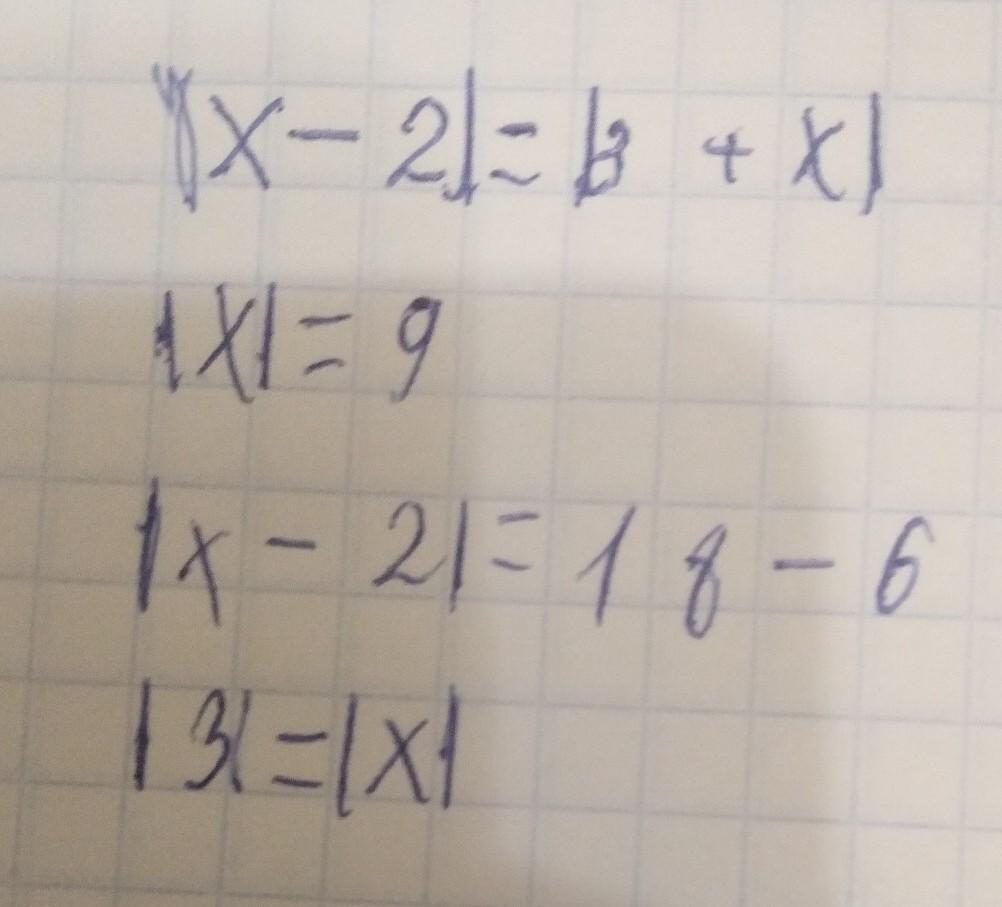 |x - 2| = |3 + x|
|x| = 9
|x - 2| = 18 - 6
|3| = |x|